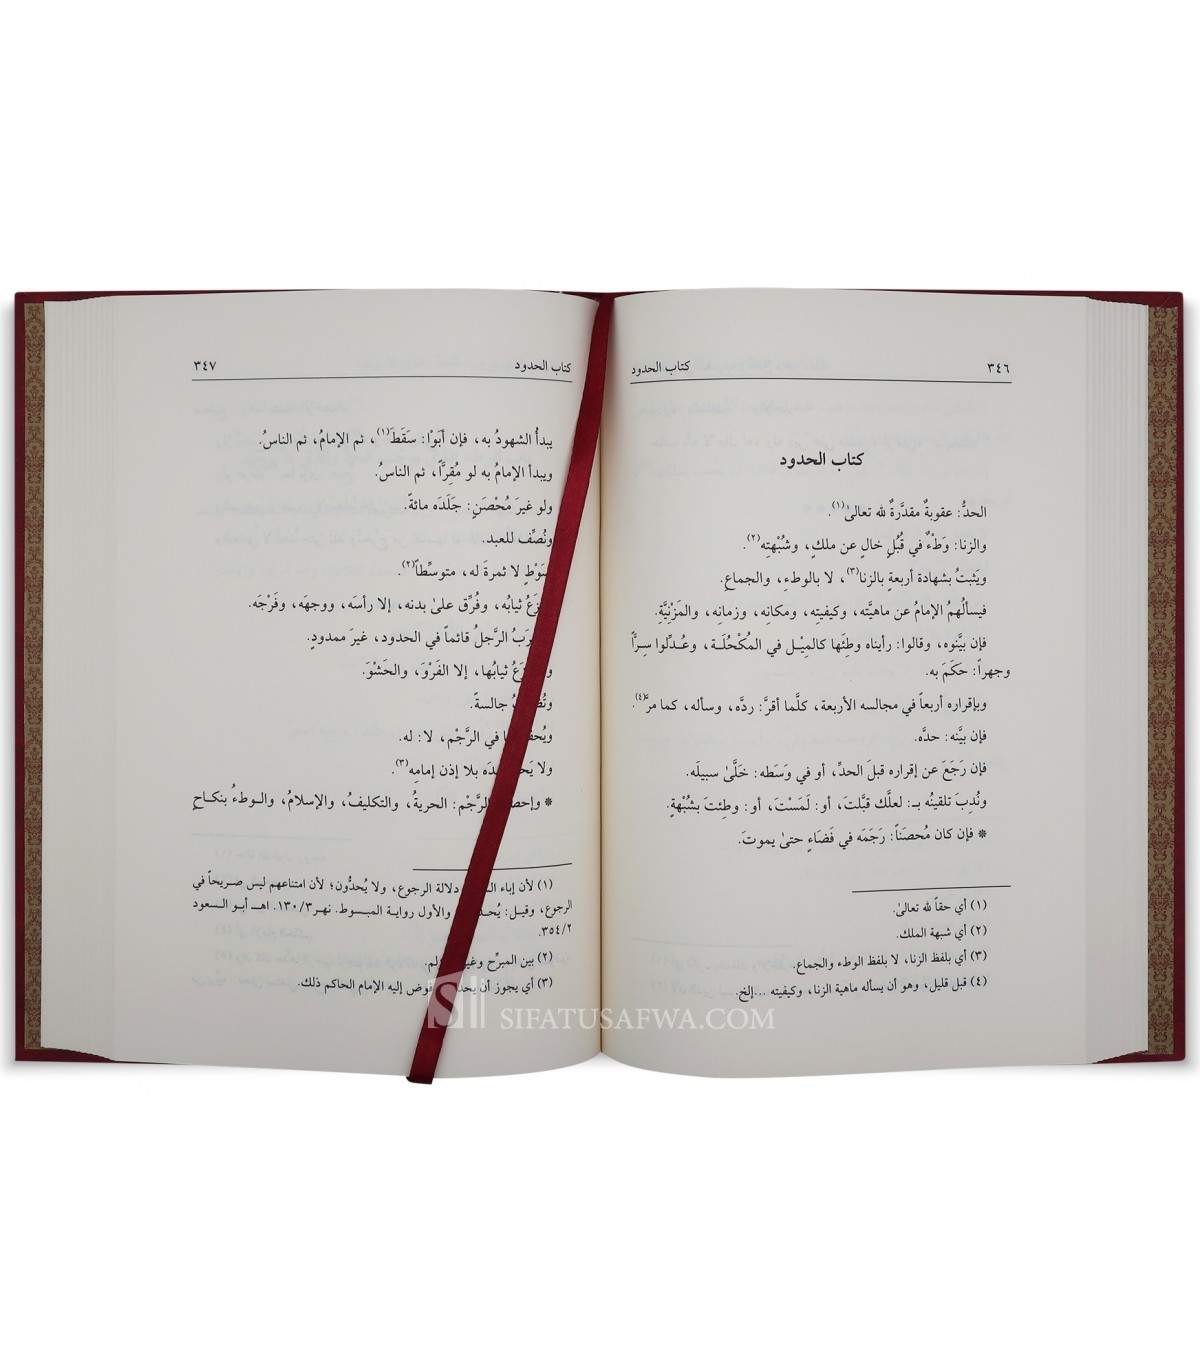 ٣٤٦ كتاب الحدود
كتاب الحدود
الحدُّ: عقوبةٌ مقدَّرةٌ لله تعالىٰ(١).
والزنا: وَطْءٌ في قُبُلٍ خالٍ عن ملكٍ، وشُبْهتِه(٢).
ويَثبتُ بشهادة أربعةٍ بالزنا(٣)، لا بالوطءِ، والجماعِ.
فيسألُهمُ الإمامُ عن ماهيَّته، وكيفيتِه، ومكانِه، وزمانِه، والمَزْنِيَّةِ.
فإن بيَّنوه، وقالوا: رأيناه وطِئَها كالمِيْل في المُكْحُلَة، وعُدِّلوا سِرَّاً
وجهراً: حكَمَ به.
وبإقراره أربعاً في مجالسه الأربعة، كلَّما أقرَّ: ردَّه، وسأله، كما مرَّ(٤).
فإن بيَّنه: حدَّه.
فإن رَجَعَ عن إقراره قبلَ الحدِّ، أو في وَسَطه: خَلَّىٰ سبيلَه.
ونُدِبَ تلقينُه بـ: لعلَّك قبَّلتَ، أو: لَمَسْتَ، أو: وطِئتَ بشُبْهةٍ.
* فإن كان مُحصَناً: رَجَمَه في فَضَاءٍ حتىٰ يموتَ.
(١) أي حقاً لله تعالىٰ.
(٢) أي شبهة الملك.
(٣) أي بلفظ الزنا، لا بلفظ الوطء والجماع.
(٤) قبل قليل، وهو أن يسأله ماهية الزنا، وكيفيته ...إلخ.
كتاب الحدود ٣٤٧
يبدأُ الشهودُ به، فإن أبَوْا: سَقَطَ(١)، ثم الإمامُ، ثم الناسُ.
ويبدأ الإمامُ به لو مُقِرَّاً، ثم الناسُ.
ولو غيرَ مُحْصَنٍ: جَلَدَه مائةً.
ونُصِّف للعبد.
سَوْطٍ لا ثمرةَ له، متوسِّطاً(٢).
ثيابُه، وفُرِّق علىٰ بدنه، إلا رأسَه، ووجهَه، وفَرْجَه.
الرَّجلُ قائماً في الحدود، غيرَ ممدودٍ.
ثيابُها، إلا الفَرْوَ، والحَشْوَ.
جالسةً.
في الرَّجْم، لا: له.
ولا بلا إذن إمامِه(٣).
* الرَّجْم: الحريةُ، والتكليفُ، والإسلامُ، والوطءُ بنكاحٍ
(١) لأن إباء دلالة الرجوع، ولا يُحدُّون؛ لأن امتناعهم ليس صريحاً في
الرجوع، وقيل: والأول رواية المبسوط. نهر١٣٠/٣. اهـ أبو السعود
٣٥٤/٢.
(٢) بين المبرِّح
(٣) أي يجوز أن فوض إليه الإمام الحاكم ذلك.
SIFATUSAFWA.COM